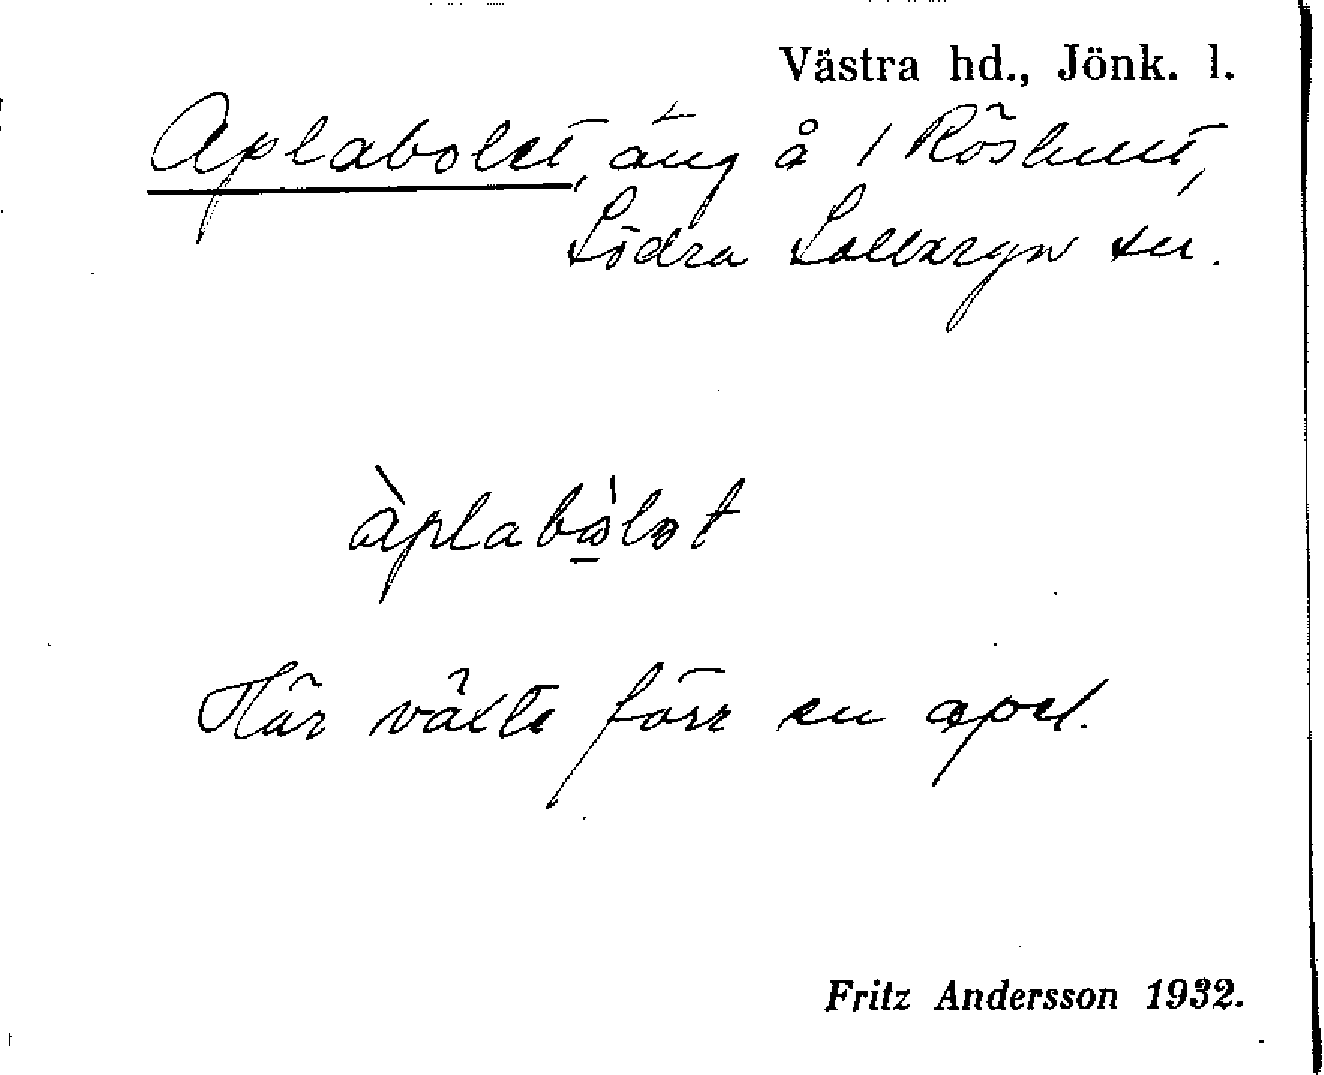 Västra hd., Jönk. l.
Aplabolet, äng å 1 Röshult,
Södra Solberga sn.
àplabòlət
Här växte förr en apel.
Fritz Andersson 1932.